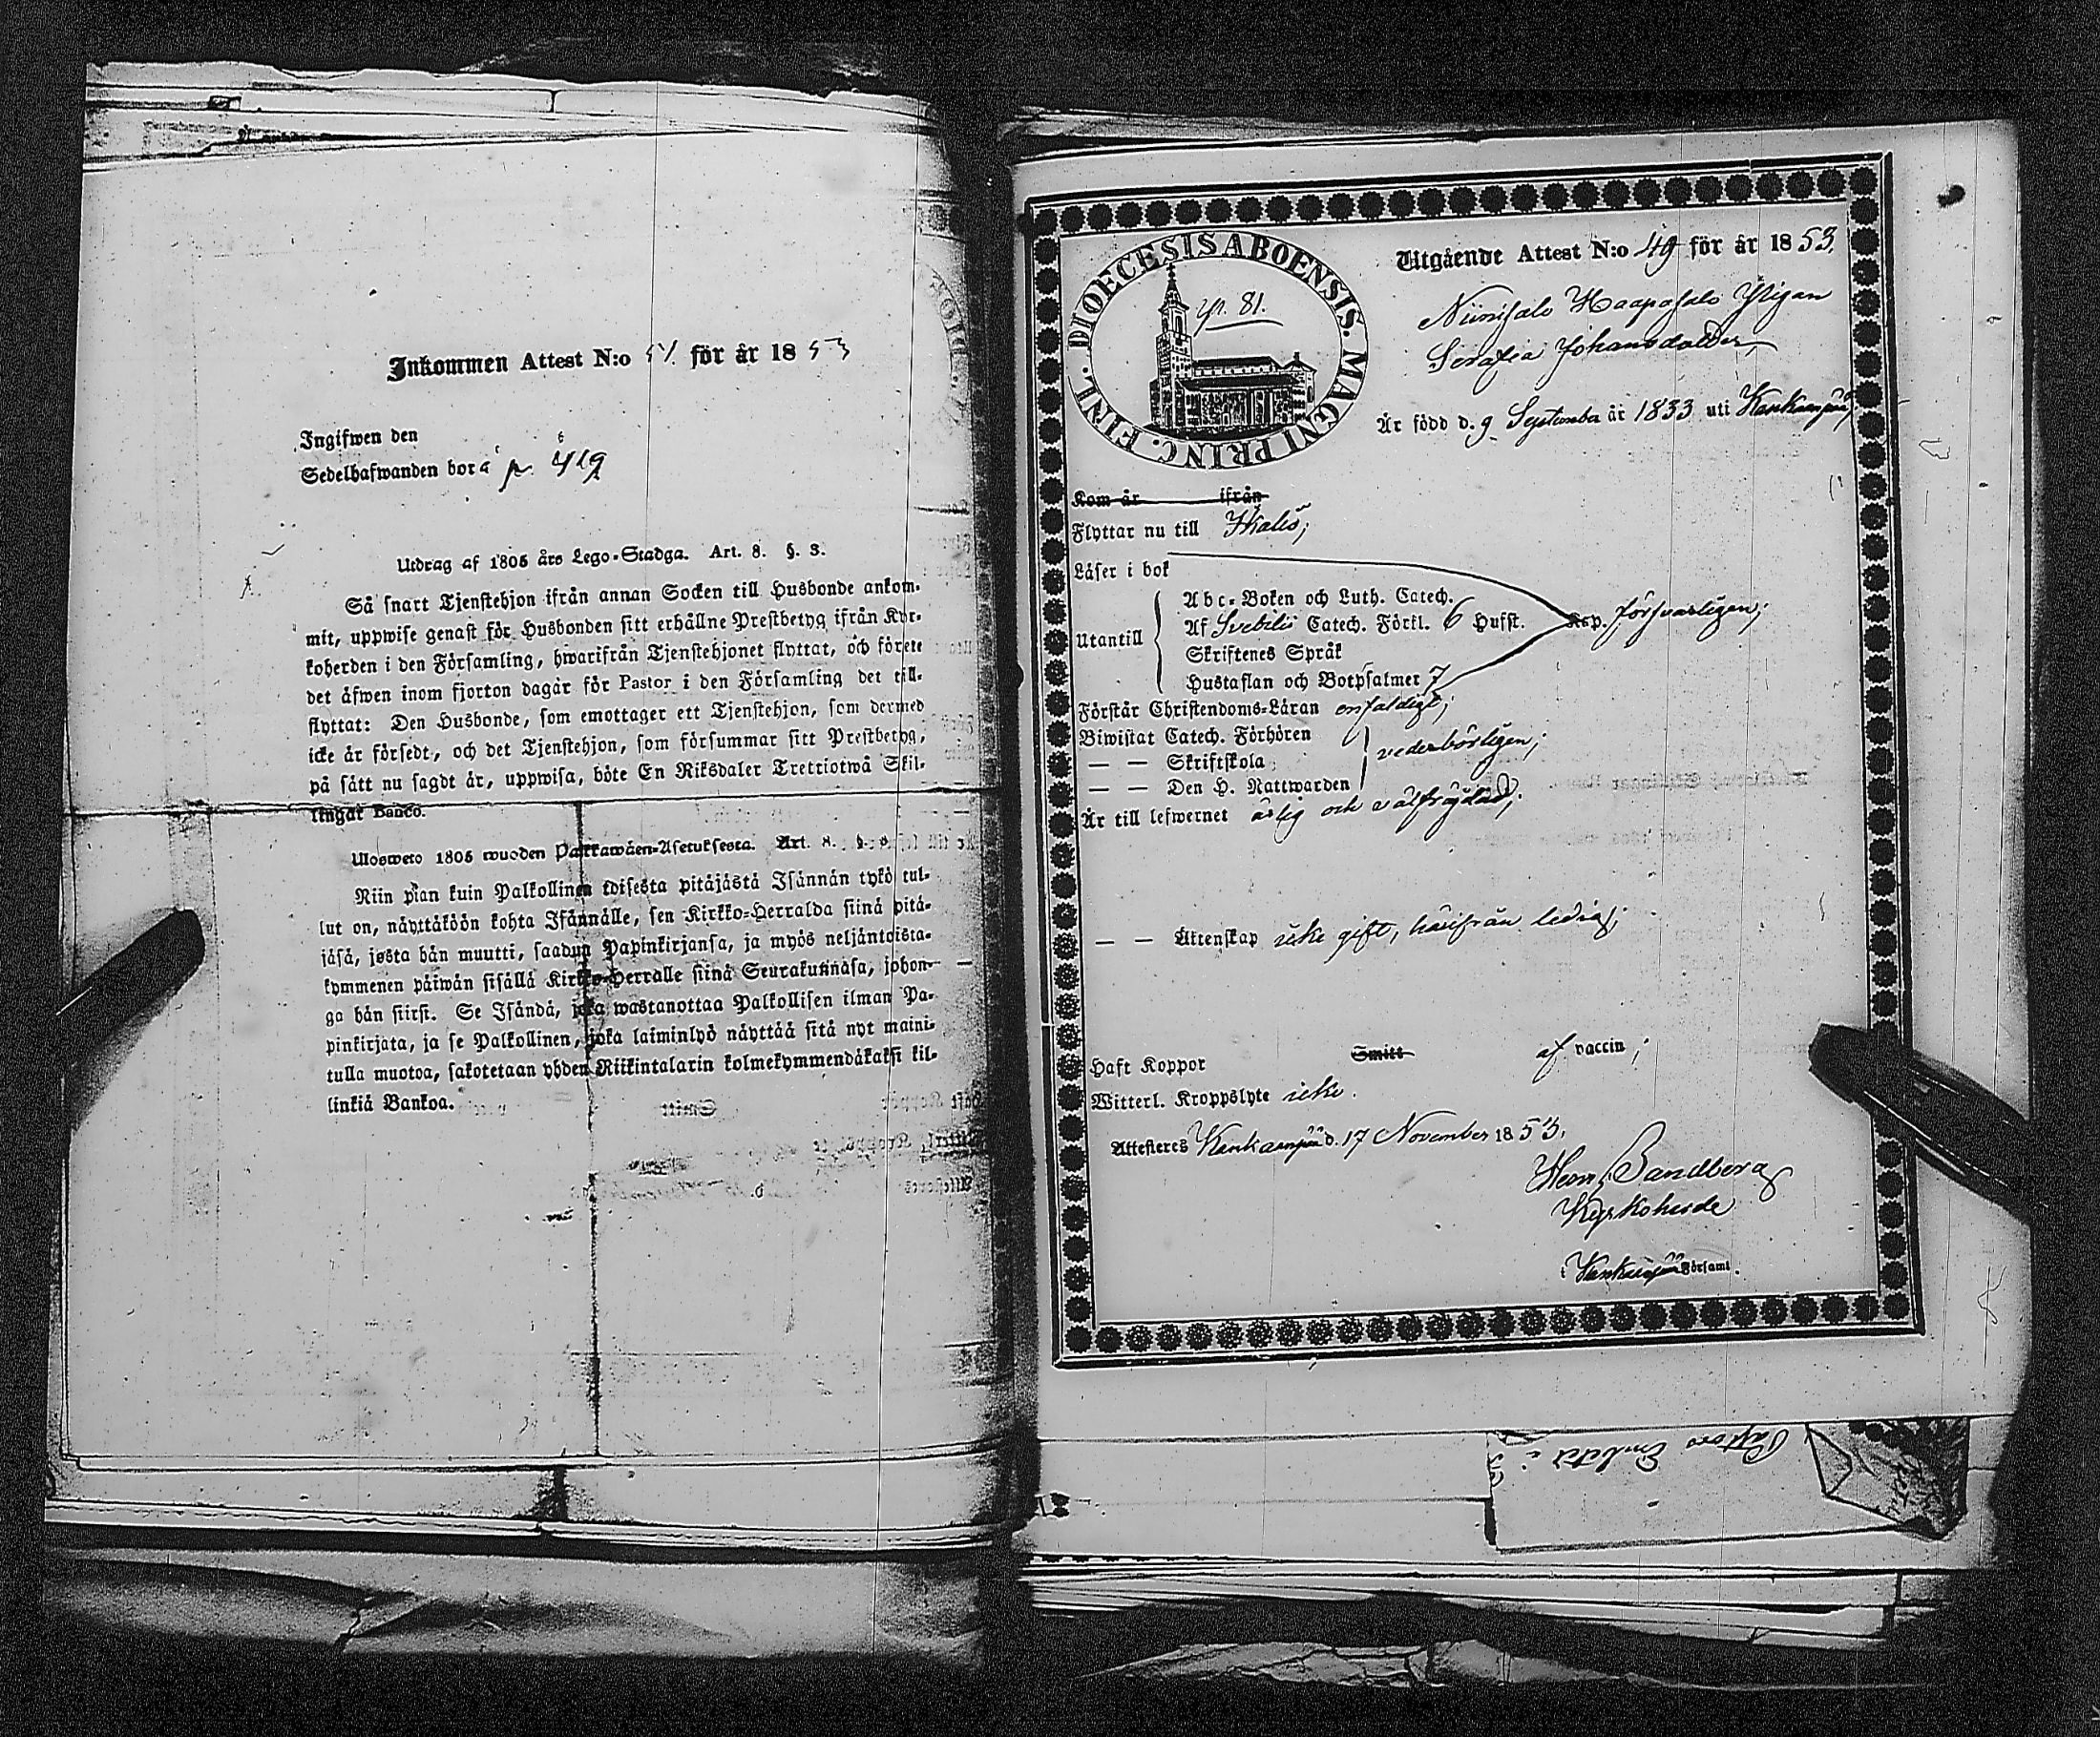 Inkommen Attest N:o 51. för år 1853
Ingifwen den
Sedelhafwanden bor å p. 419
Utdrag af 1805 års Lego-Stadga. Art. 8. §. 3.
Så snart Tjenstehjon ifrån annan Socken till Husbonde ankom-
mit, uppwise genast för Husbonden sitt erhållne Prestbetyg ifrån Kyr-
koherden i den Församling, hwarifrån Tjenstehjonet flyttat, och förete
det äfwen inom fjorton dagar för Pastor i den Församling det till-
flyttat: Den Husbonde, som emottager ett Tjenstehjon, som dermed
icke är försedt, och det Tjenstehjon, som försummar sitt Prestbetyg,
på sätt nu sagdt är, uppwisa, böte En Riksdaler Trettiotwå Skil-
lingar Banco.
Ulosweto 1805 wuoden Palkawäen-Asetuksesta. Art. 8.
Niin pian kuin Palkollinen toisesta pitäjästä Isännän tykö tul-
lut on, näyttäköön kohta Isännälle, sen Kirkko-Herralda siinä pitä-
jäsä, josta hän muutti, saadun Papinkirjansa, ja myös neljäntoista-
kymmenen päiwän sisällä Kirkko-Herralle siinä Seurakunnasa, johon-
ga hän siirsi. Se Isändä, joka wastanottaa Palkollisen ilman Pa-
pinkirjata, ja se Palkollinen, joka laiminlyö näyttää sitä nyt maini-
tulla muotoa, sakotetaan yhden Riikintalarin kolmekymmendäkaksi kil-
linkiä Bankoa.
DIOECESIS ABOENSIS. MAGNI PRINC. FINL.
p. 81.
Utgående Attest N:o 49 för år 1853.
Niinisalo Haapasalo Pigan
Serafia Johansdotter,
Är född d. 9 September år 1833 uti Kankaanpää,
Kom år ifrån
Flyttar nu till Ikalis;
Läser i bok
Utantill
Abc-Boken och Luth. Catech.
Af Svebilii Catech. Förkl. 6 Hufst.
Skriftenes Språk
Hustaflan och Botpsalmer 7
Kap. försvarligen;
Förstår Christendoms-Läran enfaldigt;
Biwistat Catech. Förhören
— — Skriftskola
— — Den H. Nattwarden
vederbörligen;
Är till lefwernet ärlig och välfrejdad;
— — Äktenskap icke gift, härifrån ledig;
Haft Koppor Smitt af vaccin;
Witterl. Kroppslyte icke.
Attesteres Kankaanpää d. 17 November 1853.
Henr. Sandberg
Kyrkoherde
i Kankaanpää Församl.